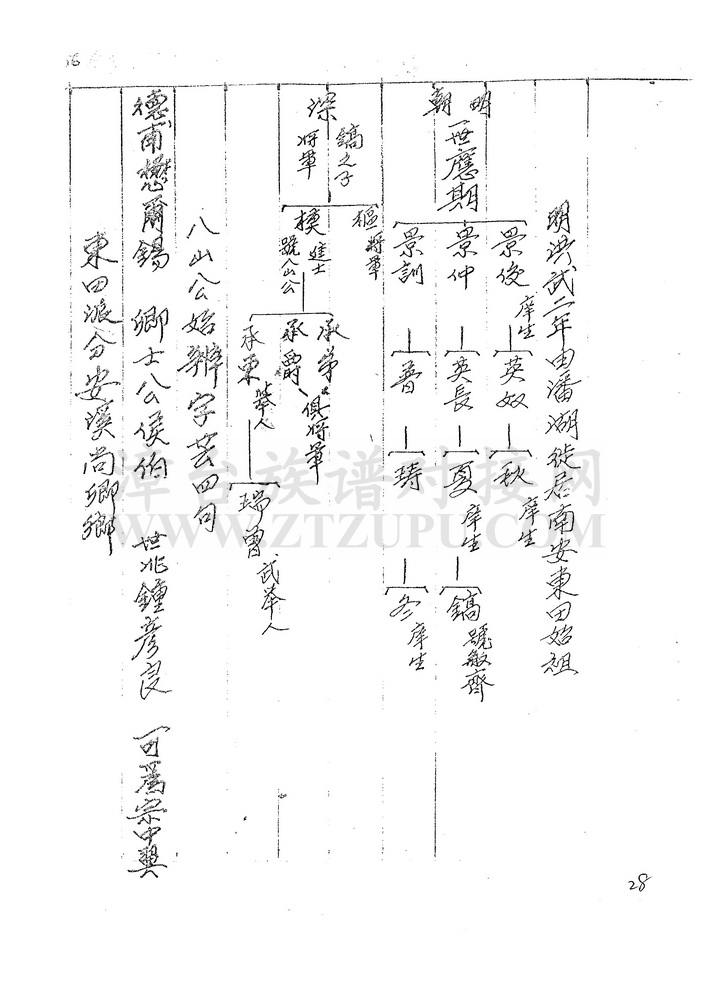 明洪武二年由潘湖徙居南安東田始祖
明朝
一世應期
景俊 庠生
英奴
秋 庠生
景仲
英長
夏 庠生
鎬 號敏齊
景訓
普
琦
冬 庠生
鎬之子
深 将軍
樞 将軍
模 進士 號八山公
承
承爵 俱将軍
承東 舉人
瑞曾 武舉人
八山公始辨字芸四句
德甫懋爾錫 卿士公侯伯 世兆鍾彦良 可為宗中翼
東田派分安溪尚卿鄉
库台族谱对接网
WWW.ZTZUPU.COM
28